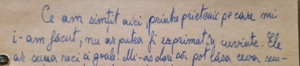 Ce am simțit aici, printre prietenii pe care mi
i-am făcut, nu ar putea fi exprimat în cuvinte. Ele
ar suna reci și goale. Mi-aș dori să pot lăsa ceva